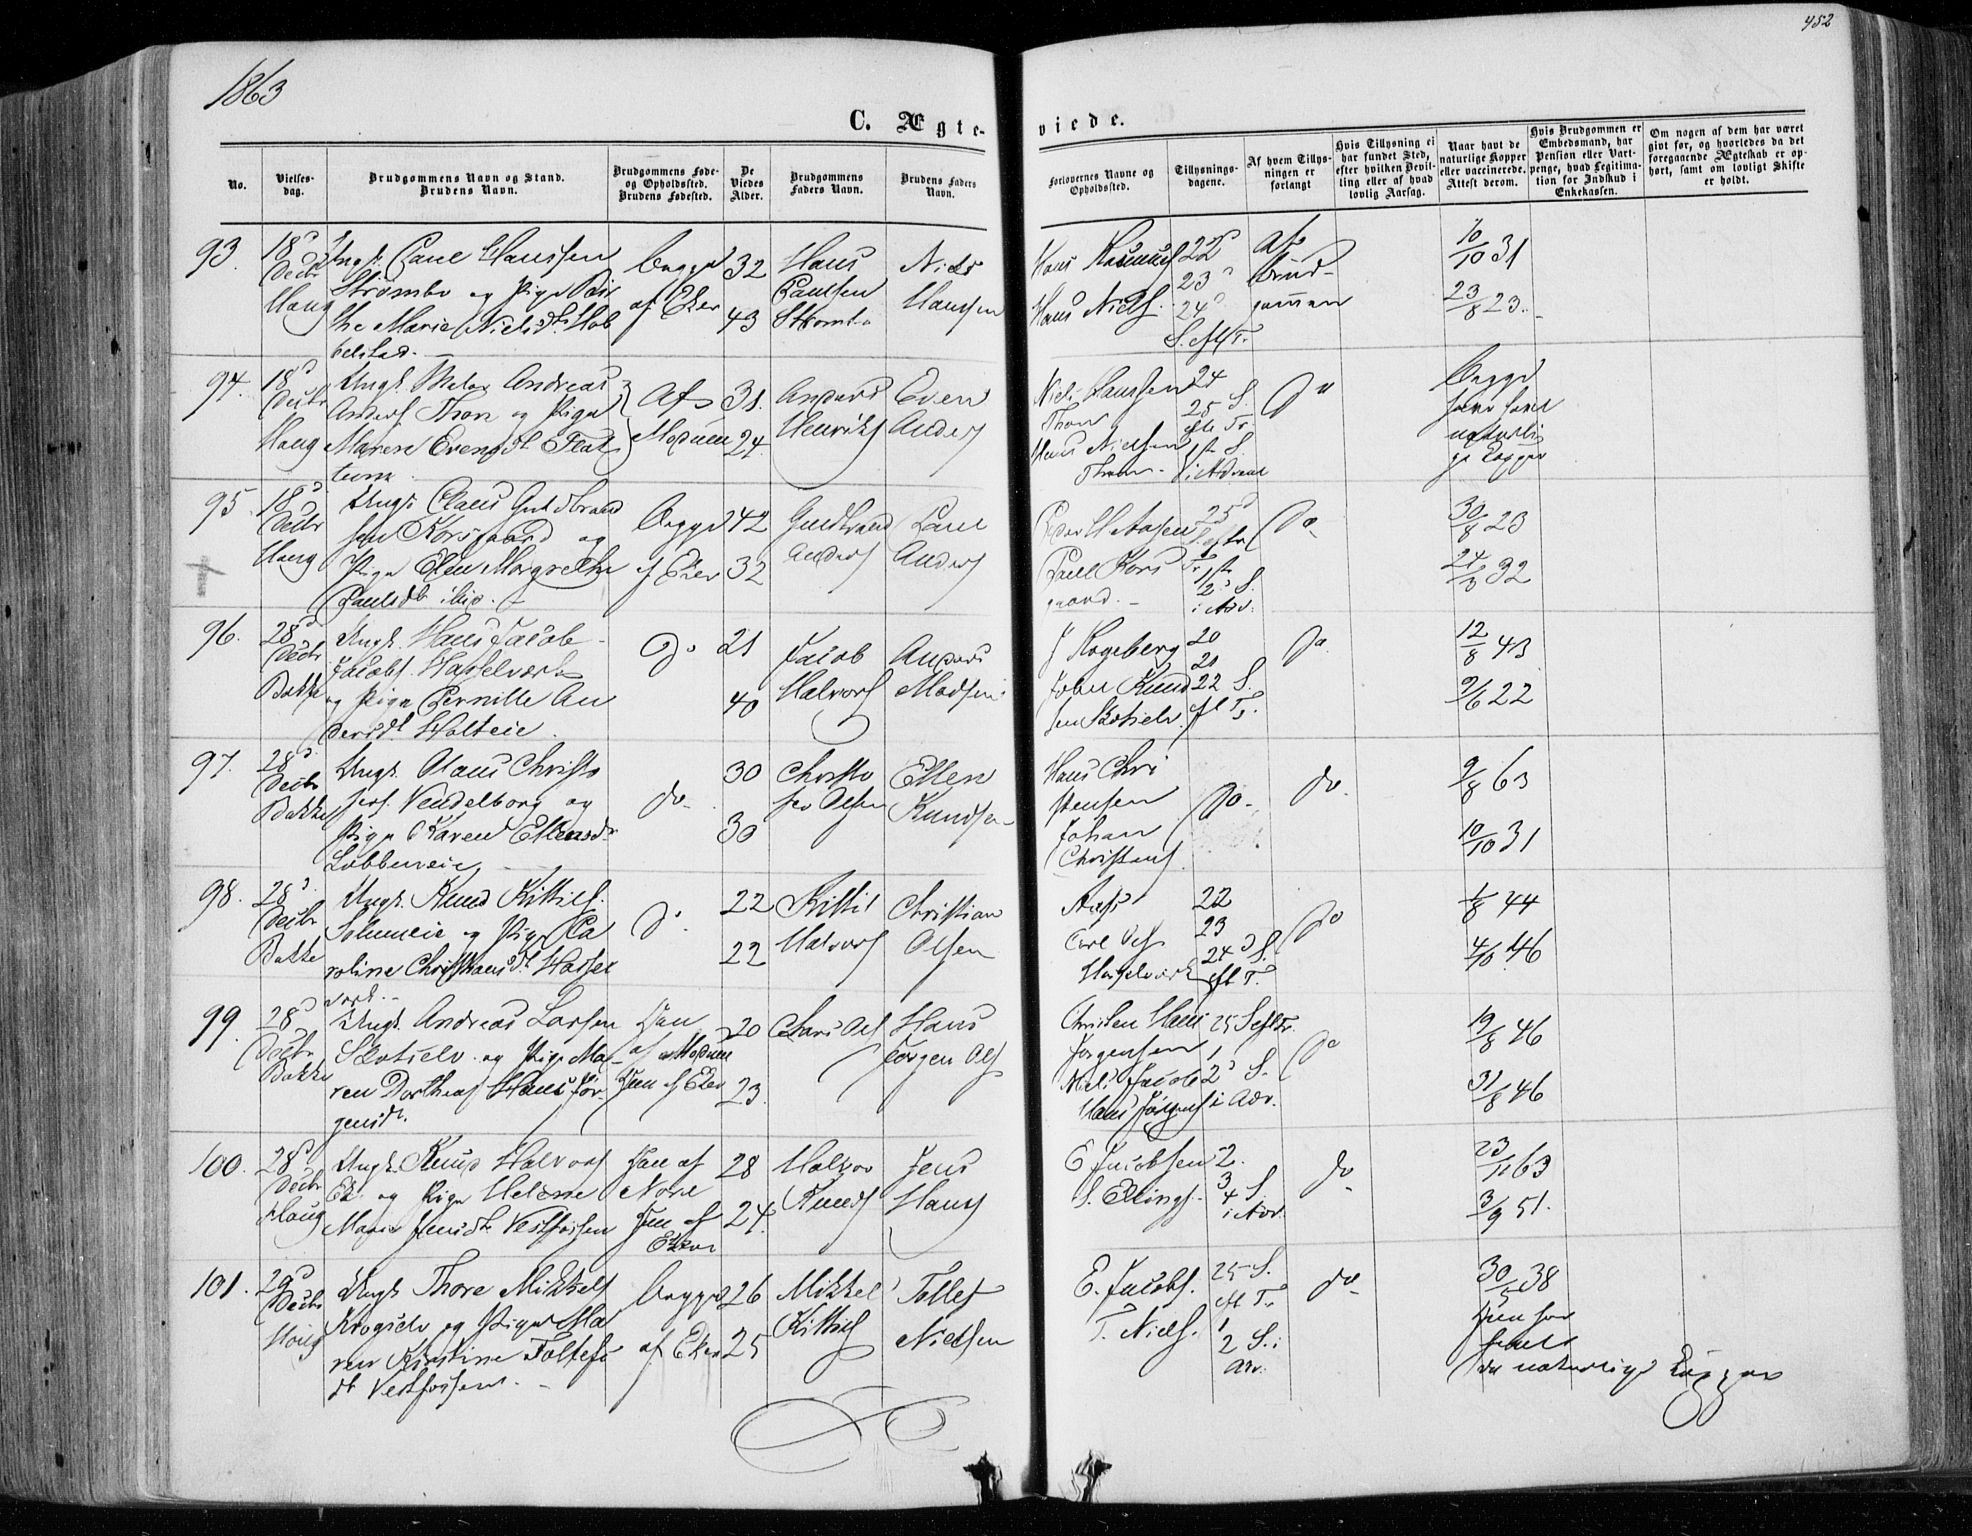 1863
452
C. Ægte-
viede.
No.
Vielses-
dag.
Brudgommens Navn og Stand.
Brudens Navn.
Brudgommens Føde-
og Opholdssted.
Brudens Fødested.
De
Viedes
Alder.
Brudgommens
Faders Navn.
Brudens Faders
Navn.
Forlovernes Navne og
Opholdssted.
Tillysnings-
dagene.
Af hvem Tillys-
ningen er
forlangt
Hvis Tillysning ei
har fundet Sted,
efter hvilken Bevil-
ling eller af hvad
lovlig Aarsag.
Naar havt de
naturlige Kopper
eller vaccinerede.
Attest derom.
Hvis Brudgommen er
Embedsmand, har
Pension eller Vart-
penge, hvad Legitima-
tion for Indskud i
Enkekassen.
Om nogen af dem har været
givt før, og hvorledes da det
foregaaende Ægteskab er op-
hørt, samt om lovligt Skifte
er holdt.
93.
18d
Decbr
Haug
Ungk. Paul Hanssen
Strømbo og Pige
the Marie Nielsdt. Hob
belstad.
Begge
af Eker
32
43
Hans
Paulsen
Strømbo
Niels
Hanssen
Hans Rasmus
Hans Niels.
22
23
24
S. eft Tr.
Af
Brud-
gommen
10/10 31
23/8 23.
94.
18d
Decbr
Haug
Ungk. Peter Andreas
Anders Thon og Pige
Maren Evensdt. Flat
Af
Modum
31.
24.
Anders
Henriks
Even
Anders
Niels Hanssen
Thon
Hans Nielsen
Thon
24
25 S.
eft Tr
1ste S.
i Advent
Do
Begge
have havt
naturli
ge Kopper
95
18d
Decbr
Haug
Ungk. Claus Guldbrand
sen Korsgaard og
Pige Elen Margrethe
Paulsdt. ibid.
Begge
af Eker
42
32
Guldbrand
Anders
Paul
Anders
Peder
Paul Kors
gaard.
25d
S. eft
Tr 1ste
2d S.
i Adv.
Do.
30/8 23
24/8 32
96.
28d
Decbr
Bakke
Ungk. Hans Jacob
Jacobs. Hasselværk
og Pige Pernille An
dersdt. Holteie.
Do
21
40
Jacob
Halvors
Anders
Madsen
J Kogeberg
Johan Knud
sen Skotselv.
20
21
22 S.
eft Tr.
Do
12/8 43
9/6 22
97.
28d
Decbr
Bakke
Ungk. Olaus Christo
fers. Vendelborg og
Pige Karen Ellensdr
Lobbeneie
do.
30
30
Christo
fer Olsen
Ellen
Knudsen
Hans Chri
stensen
Johan
Christens
Do.
do.
9/8 63
10/10 31
98.
28d
Decbr
Bakke
Ungk. Knud Kittils.
Solumeie og Pige Ca
roline Christiansdt. Hassel
værk.
Do.
22
22
Kittil
Halvors
Christian
Olsen
Carl
Hasselværk
22
23
24d S.
eft Tr.
Do
1/8 44
4/10 46
99.
28d
Decbr
Bakke
Ungk. Andreas Larsen
Skotselv og Pige Ma-
ren Dorthea Hans Jør-
gensdt.
Han
af Modum
Hun af Eker
20
23.
Lars Ols
Hans
Jørgen Ols
Christen Hans
Jørgensen
Niels Jacob
Hans Jørgens
25 S eft Tr.
1
2d S.
i Adv.
Do
19/8 46
31/8 46
100.
28d
Decbr
Haug
Ungk. Knud Halvors
Ek og Pige Helene
Marie Jensdt. Vestfossen
Han af
Nore
Hun af
Eker
28
24.
Halvor
Knuds
Jens
Hans
E Jacobsen
S. Ellings.
2.
3
4 S
i Adv.
do
23/11 63
3/9 51.
101.
29d
Decbr
Haug
Ungk Thore Mikkels
Krogselv og Pige Ma
ren Kirstine Tollefs
dt Vestfossen.
Begge
af Eker
26
25
Mikkel
Kittils
Tollef
Nielsen
E. Jacobs.
T. Niels.
25 S.
eft Tr
1
2 S. i
Adv.
do
30/5 38
Hun har
havt
de naturlige Kopper